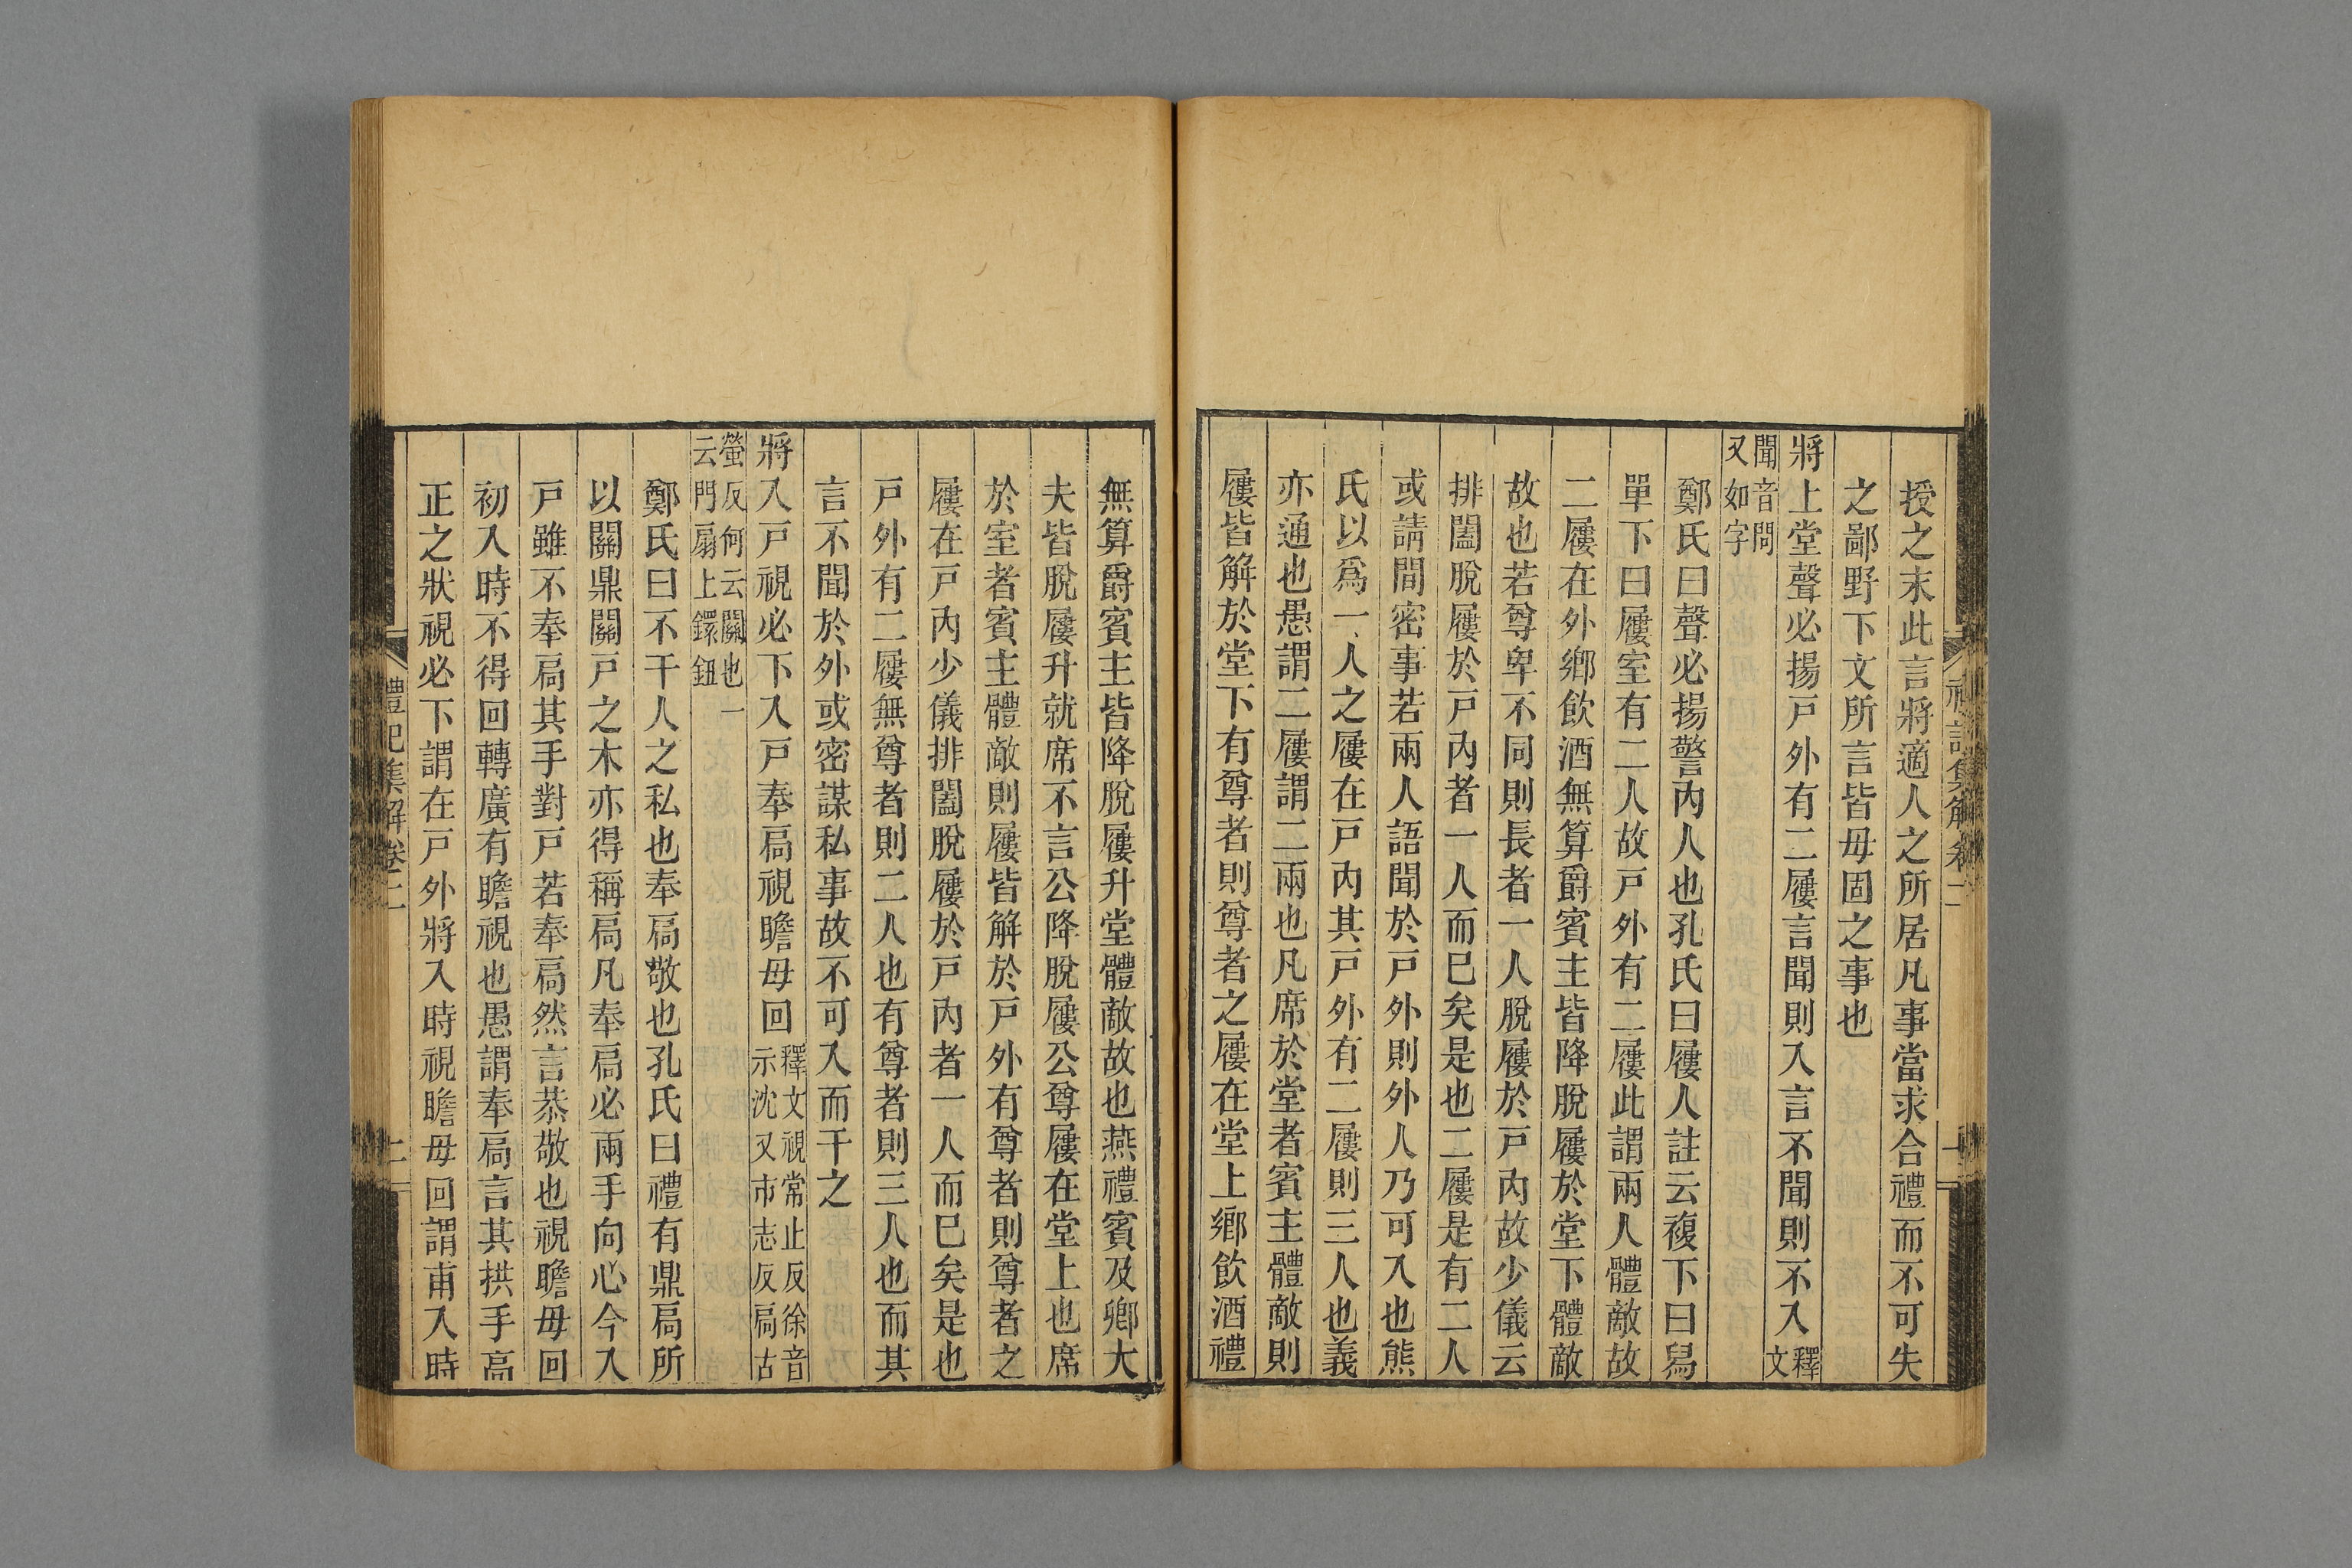 授之末此言將適人之所居凡事當求合禮而不可失
之鄙野下文所言皆毋固之事也
將上堂聲必揚戸外有二屨言聞則入言不聞則不入釋文
聞音問又如字
鄭氏曰聲必揚警內人也孔氏曰屨人註云複下曰舄
單下曰屨室有二人故戸外有二屨此謂兩人體敵故
二屨在外鄉飲酒無算爵賓主皆降脫屨於堂下體敵
故也若尊卑不同則長者一人脫屨於戸內故少儀云
排闔脫屨於戸內者一人而已矣是也二屨是有二人
或請間密事若兩人語聞於戸外則外人乃可入也熊
氏以爲一人之屨在戸內其戸外有二屨則三人也義
亦通也愚謂二屨謂二兩也凡席於堂者賓主體敵則
屨皆解於堂下有尊者則尊者之屨在堂上鄉飲酒禮
無算爵賓主皆降脫屨升堂體敵故也燕禮賓及卿大
夫皆脫屨升就席不言公降脫屨公尊屨在堂上也席
於室者賓主體敵則屨皆解於戸外有尊者則尊者之
屨在戸內少儀排闔脫屨於戸內者一人而已矣是也
戸外有二屨無尊者則二人也有尊者則三人也而其
言不聞於外或密謀私事故不可入而干之
將入戸視必下入戸奉扃視瞻毋回釋文視常止反徐音示沈又市志反扃古
螢反何云關也一云門扇上鐶鈕
鄭氏曰不干人之私也奉扃敬也孔氏曰禮有鼎扃所
以關鼎關戸之木亦得稱扃凡奉扃必兩手向心今入
戸雖不奉扃其手對戸若奉扃然言恭敬也視瞻毋回
初入時不得回轉廣有瞻視也愚謂奉扃言其拱手高
正之狀視必下謂在戸外將入時視瞻毋回謂甫入時
禮記集解卷二